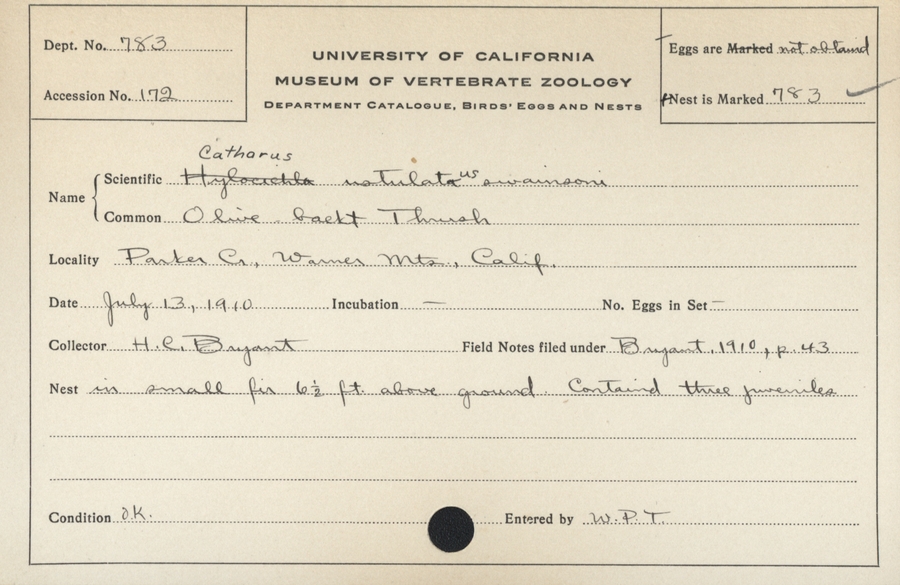 Dept. No. 783
Accession No. 172
UNIVERSITY OF CALIFORNIA
MUSEUM OF VERTEBRATE ZOOLOGY
DEPARTMENT CATALOGUE, BIRDS' EGGS AND NESTS
Eggs are Marked not obtained
Nest is Marked 783
Catharus
Name Scientific Hylocichla ustulata us swainsoni
Common Olive backt Thrush
Locality Parker Cr., Warner Mts., Calif.
Date July 13, 1910 Incubation — No. Eggs in Set —
Collector H. C. Bryant Field Notes filed under Bryant, 1910, p. 43
Nest in small fir 6½ ft. above ground. Containd three juveniles
Condition O.K. Entered by W. P. T.